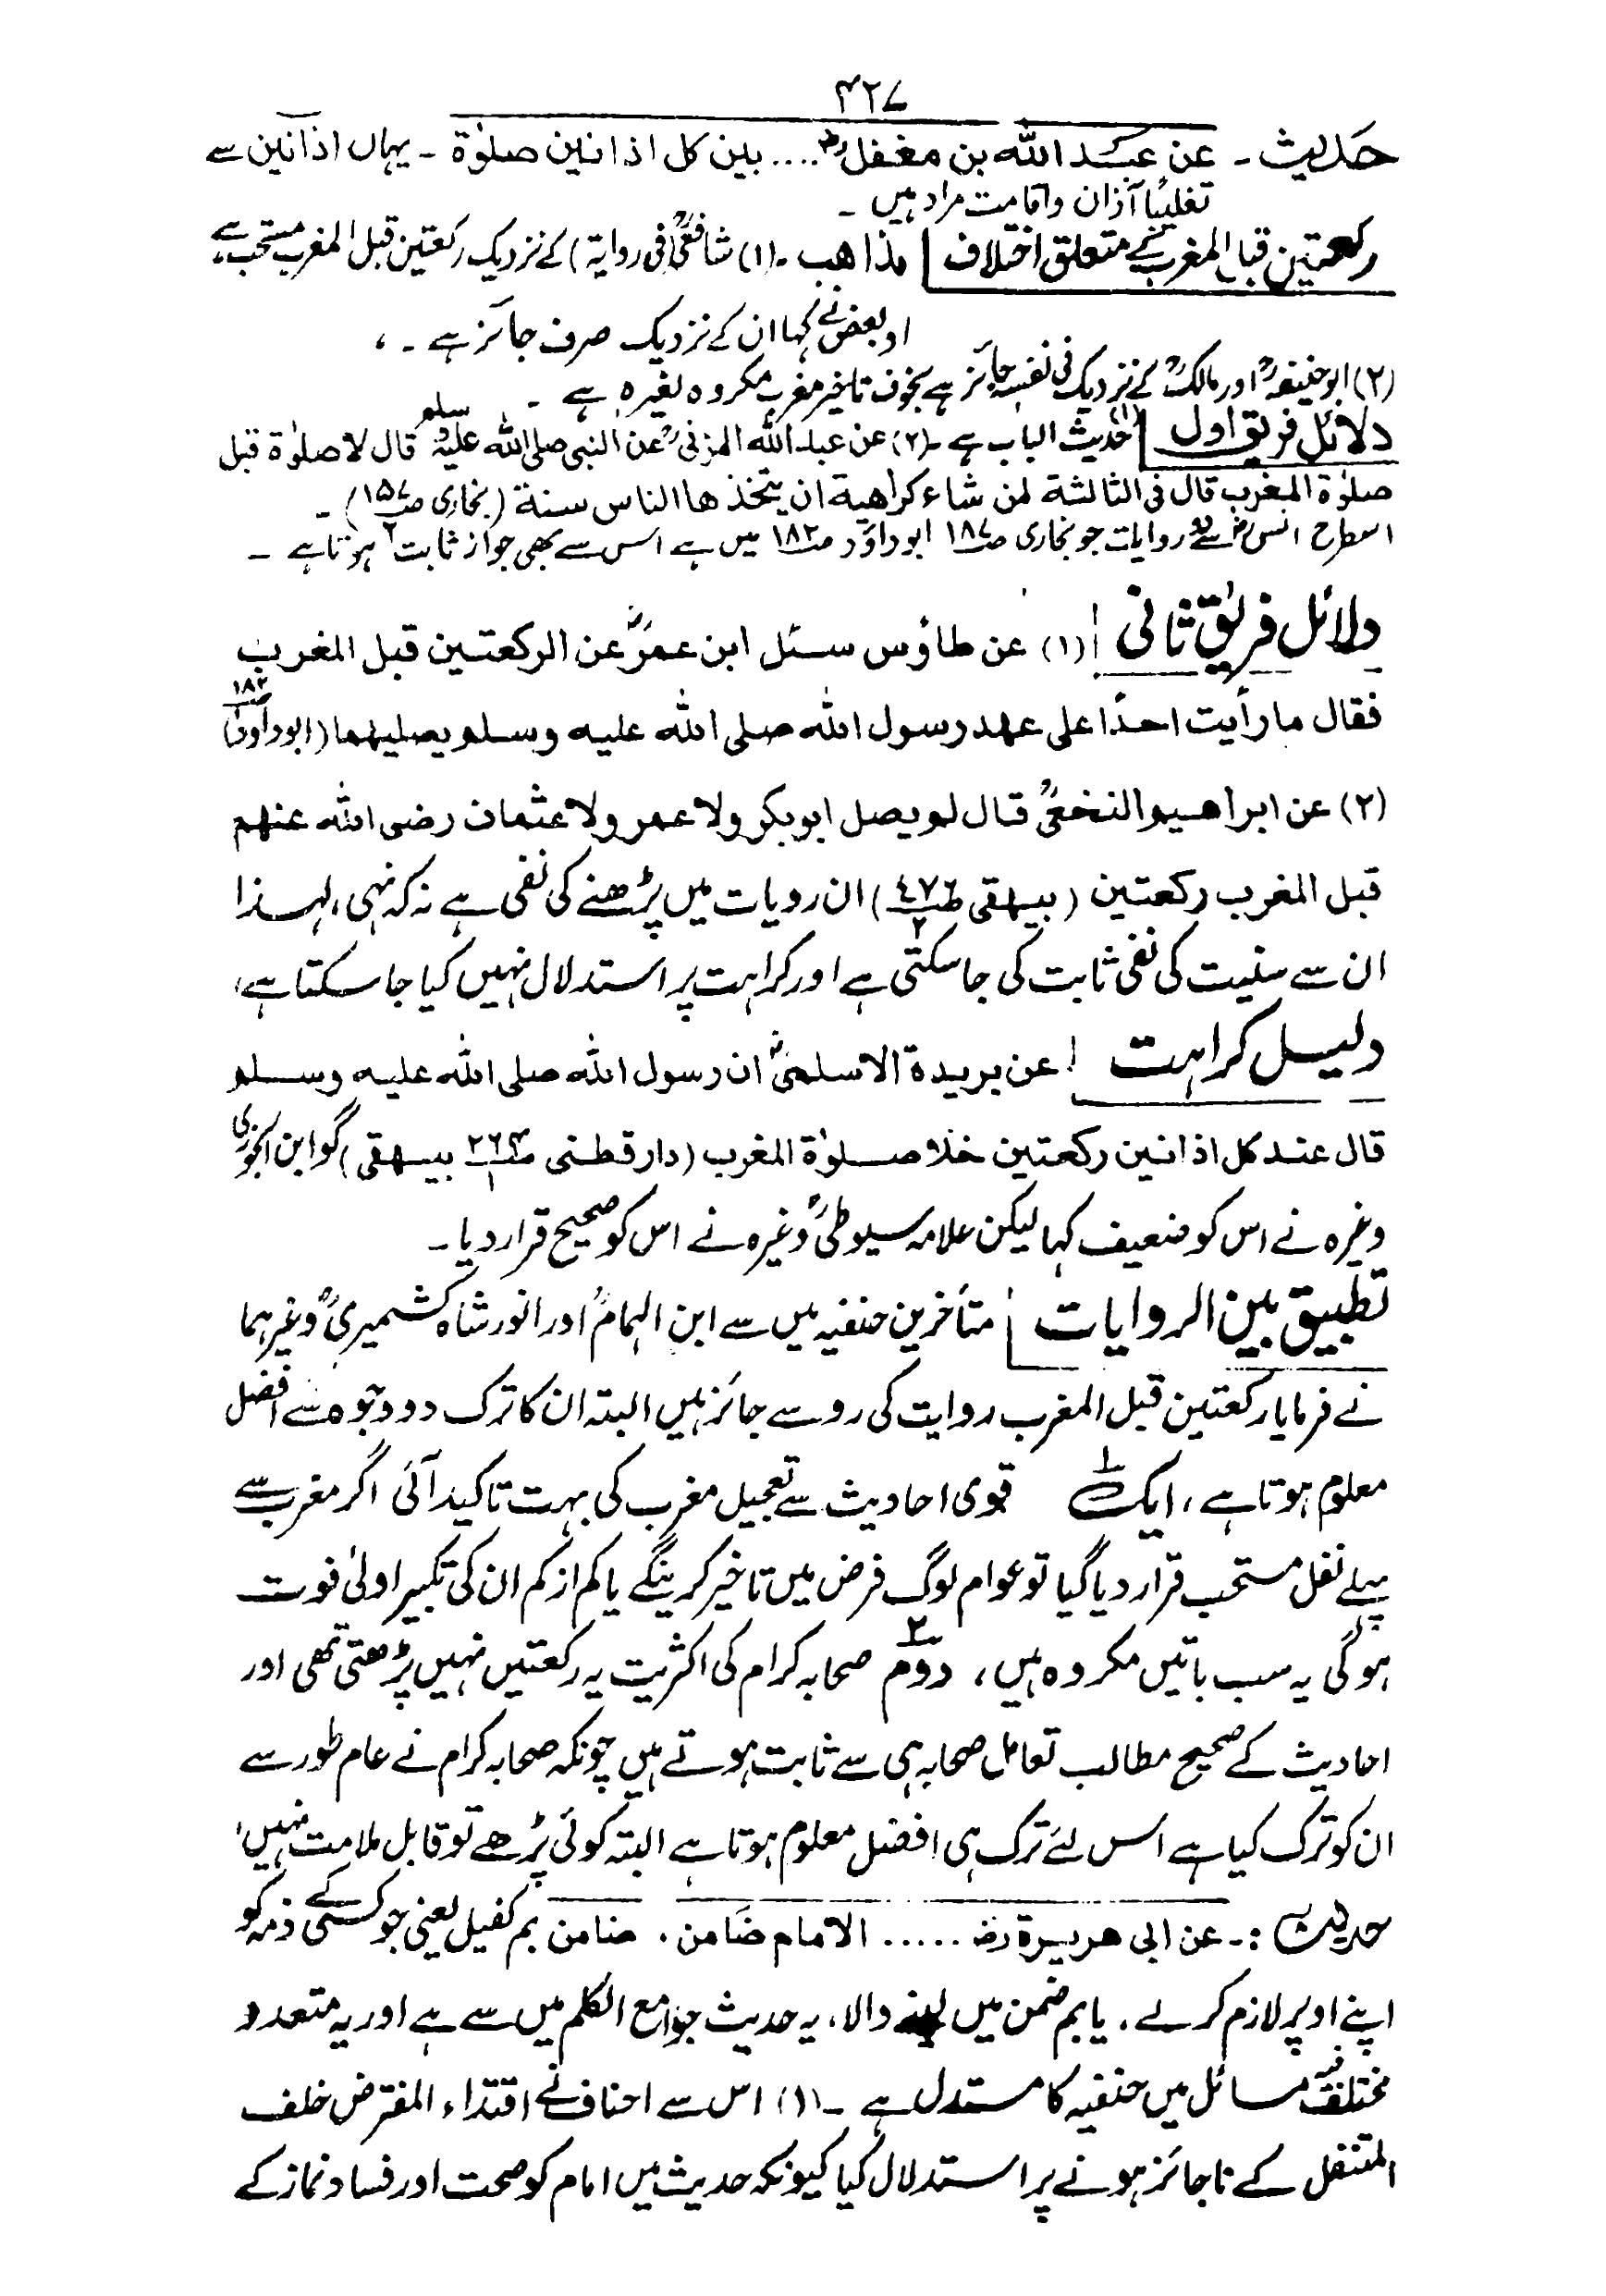 ۴۲۷
حدیث ۔ عن عبد الله بن مغفلؓ .... بین کل اذانین صلوٰة ۔ یہاں اذانین سے
تغلیباً آذان واقامت مراد ہیں ۔
رکعتین قبل المغرب کے متعلق اختلاف | مذاھب ۔ (۱) شافعیؒ (فی روایة) کے نزدیک رکعتین قبل المغرب مستحب ہے
اور بعض نے کہا ان کے نزدیک صرف جائز ہے ۔ ،
(۲) ابوحنیفہؒ اور مالکؒ کے نزدیک فی نفسہ جائز ہے بخوف تاخیر مغرب مکروہ لغیرہ ہے ۔
دلائل فریق اول | (۱) حدیث الباب ہے ۔ (۲) عن عبد الله المزنیؓ عن النبی صلی الله علیہ وسلم قال لا صلوٰة قبل
صلوٰة المغرب قال فی الثالثة لمن شاء کراھیة ان یتخذھا الناس سنة (بخاری ص۱۵۷) ۔
اسطرح انسؓ سے روایات جو بخاری ص۱۸۷ ابوداؤد ص۱۸۲ میں ہے اس سے بھی جواز ثابت ہوتا ہے ۔
دلائل فریق ثانی | (۱) عن طاؤس سئل ابن عمرؓ عن الرکعتین قبل المغرب
فقال ما رأیت احدًا علی عھد رسول الله صلی الله علیہ وسلم یصلیھما (ابوداؤد ص۱۸۲)
(۲) عن ابراھیم النخعیؒ قال لم یصل ابوبکر ولا عمر ولا عثمان رضی الله عنھم
قبل المغرب رکعتین (بیھقی ص۴۷۶/۲) ان رویات میں پڑھنے کی نفی ہے نہ کہ نہی، لہذا
ان سے سنیت کی نفی ثابت کی جاسکتی ہے اور کراہت پر استدلال نہیں کیا جا سکتا ہے،
دلیل کراہت | عن بریدة الاسلمیؓ ان رسول الله صلی الله علیہ وسلم
قال عند کل اذانین رکعتین خلا صلوٰة المغرب (دارقطنی ص۲۶۴/۱ بیھقی) گو ابن الجوزی
وغیرہ نے اس کو ضعیف کہا لیکن علامہ سیوطیؒ وغیرہ نے اس کو صحیح قرار دیا ۔
تطبیق بین الروایات | متأخرین حنفیہ میں سے ابن الہمامؒ اور انور شاہ کشمیریؒ وغیرہما
نے فرمایا رکعتین قبل المغرب روایت کی رو سے جائز ہیں البتہ ان کا ترک دو وجوہ سے افضل
معلوم ہوتا ہے، ایک ۱؎ قوی احادیث سے تعجیل مغرب کی بہت تاکید آئی اگر مغرب سے
پہلے نفل مستحب قرار دیا گیا تو عوام لوگ فرض میں تاخیر کرینگے یا کم از کم ان کی تکبیر اولیٰ فوت
ہوگی یہ سب باتیں مکروہ ہیں، دوم ۲؎ صحابہ کرام کی اکثریت یہ رکعتیں نہیں پڑھتی تھی اور
احادیث کے صحیح مطالب تعامل صحابہ ہی سے ثابت ہوتے ہیں چونکہ صحابہ کرام نے عام طور سے
ان کو ترک کیا ہے اس لئے ترک ہی افضل معلوم ہوتا ہے البتہ کوئی پڑھے تو قابل ملامت نہیں،
حدیث :۔ عن ابی ھریرة رضؓ ..... الامام ضامن . ضامن بم کفیل یعنی جو کسی کے ذمہ کو
اپنے اوپر لازم کر لے، یا بم ضمن میں لینے والا، یہ حدیث جوامع الکلم میں سے ہے اور یہ متعدد
مختلف فیہ مسائل میں حنفیہ کا مستدل ہے ۔ (۱) اس سے احناف نے اقتداء المفترض خلف
المتنفل کے ناجائز ہونے پر استدلال کیا کیونکہ حدیث میں امام کو صحت اور فساد نماز کے